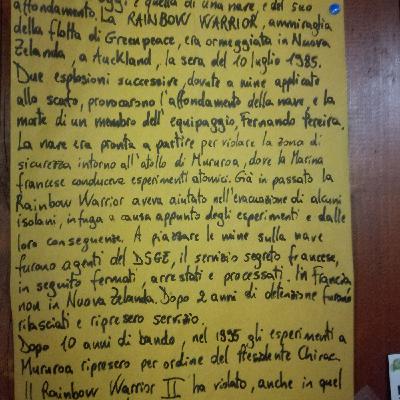 oggi è quella di una nave, e del suo
affondamento. La RAINBOW WARRIOR, ammiraglia
della flotta di Greenpeace, era ormeggiata in Nuova
Zelanda, a Auckland, la sera del 10 luglio 1985.
Due esplosioni successive, dovute a mine applicate
allo scafo, provocarono l'affondamento della nave, e la
morte di un membro dell'equipaggio, Fernando Pereira.
La nave era pronta a partire per violare la zona di
sicurezza intorno all'atollo di Mururoa, dove la Marina
francese conduceva esperimenti atomici. Già in passato la
Rainbow Warrior aveva aiutato nell'evacuazione di alcuni
isolani, in fuga a causa appunto degli esperimenti e dalle
loro conseguenze. A piazzare le mine sulla nave
furono agenti del DSGE, il servizio segreto francese,
in seguito fermati, arrestati e processati. In Francia,
non in Nuova Zelanda. Dopo 2 anni di detenzione furono
rilasciati e ripresero servizio.
Dopo 10 anni di bando, nel 1995 gli esperimenti a
Mururoa ripresero per ordine del Presidente Chirac.
Il Rainbow Warrior II ha violato, anche in quel